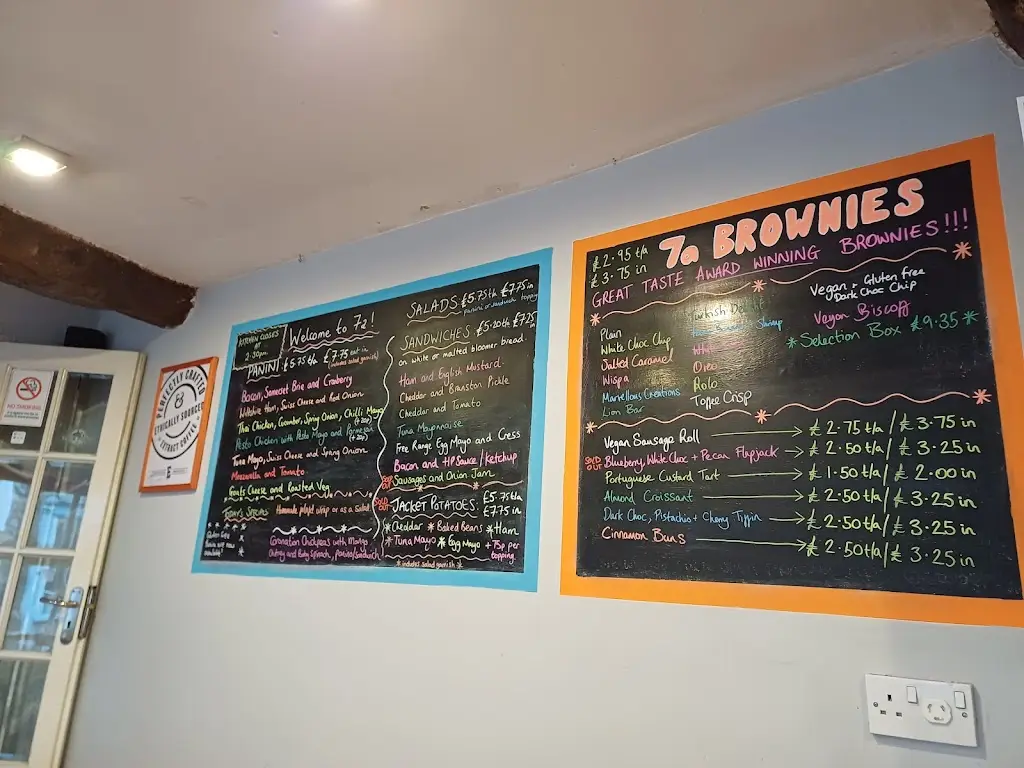 NO SMOKING
PERFECTLY CRAFTED
&
ETHICALLY SOURCED
EXTRACT COFFEE
KITCHEN CLOSES
AT
2:30pm
Welcome to 7a!
PANINI £5.75 t/a £7.75 eat in
(includes salad garnish)
Bacon, Somerset Brie and Cranberry
Wiltshire Ham, Swiss Cheese and Red Onion
Thai Chicken, Cucumber, Spring Onion, Chilli Mayo
Pesto Chicken with Pesto Mayo and Parmesan
Tuna Mayo, Swiss Cheese and Spring Onion
Mozzarella and Tomato
Goats Cheese and Roasted Veg
TODAY'S SPECIALS
Homemade wrap or as a Salad
Coronation Chickpeas with Mango
Chutney and Baby Spinach, panini/sandwich
SALADS £5.75 t/a £7.75 in
panini or sandwich topping
SANDWICHES £5.20 t/a £7.25 in
on white or malted bloomer bread
Ham and English Mustard
Cheddar and Branston Pickle
Cheddar and Tomato
Tuna Mayonnaise
Free Range Egg Mayo and Cress
Bacon and HP Sauce/Ketchup
SOLD OUT Sausages and Onion Jam
SOLD OUT JACKET POTATOES: £5.75 t/a
£7.75 in
* Cheddar * Baked Beans * Ham
* Tuna Mayo * Egg Mayo + 75p per
topping
* includes salad garnish *
£2.95 t/a
£3.75 in
7a BROWNIES
GREAT TASTE AWARD WINNING BROWNIES!!!
Plain
White Choc Chip
Salted Caramel
Wispa
Marvellous Creations
Lion Bar
Turkish Delight
Oreo
Rolo
Toffee Crisp
Vegan + Gluten free
Dark Choc Chip
Vegan Biscoff
* Selection Box £9.35 *
Vegan Sausage Roll £2.75 t/a / £3.75 in
SOLD OUT Blueberry, White Choc + Pecan Flapjack £2.50 t/a / £3.25 in
Portuguese Custard Tart £1.50 t/a / £2.00 in
Almond Croissant £2.50 t/a / £3.25 in
Dark Choc, Pistachio + Cherry Tiffin £2.50 t/a / £3.25 in
Cinnamon Buns £2.50 t/a / £3.25 in